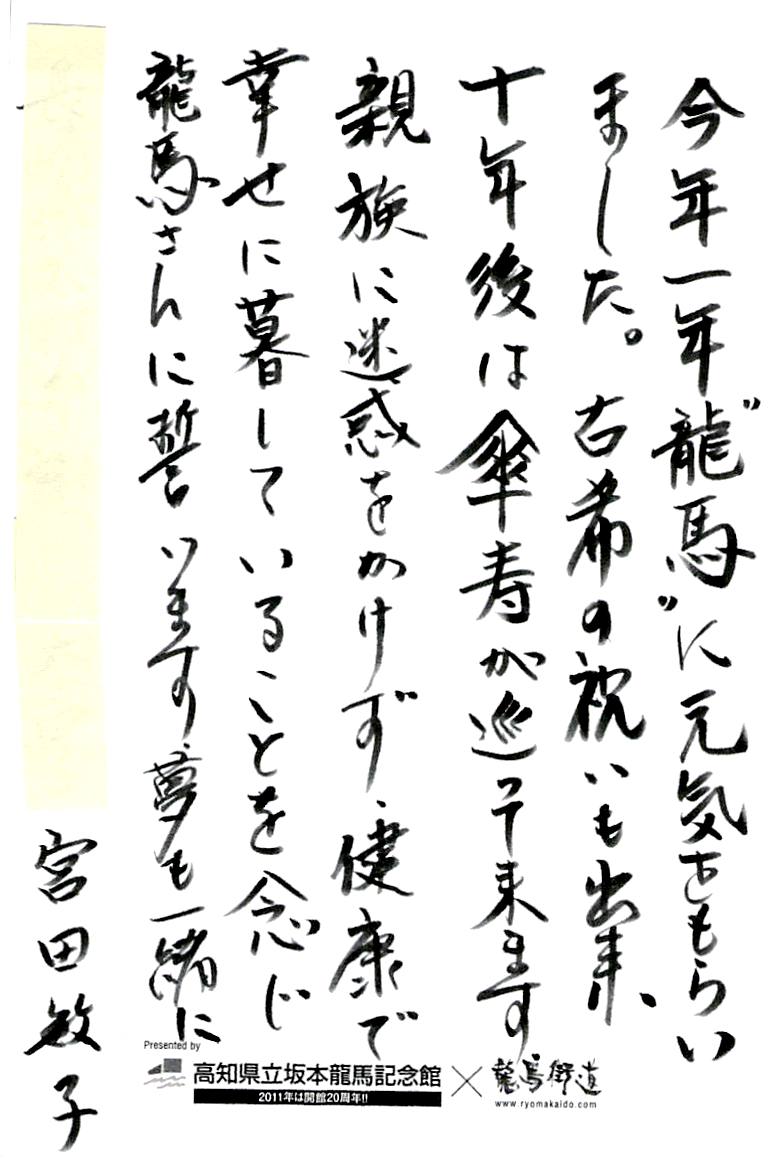 今年一年〝龍馬〟に元気をもらい
ました。古希の祝いも出来、
十年後は傘寿が巡って来ます
親族に迷惑をかけず、健康で
幸せに暮していることを念じ
龍馬さんに誓います、夢も一緒に
宮田敏子
Presented by
高知県立坂本龍馬記念館×龍馬街道
2011年は開館20周年!!
www.ryomakaido.com